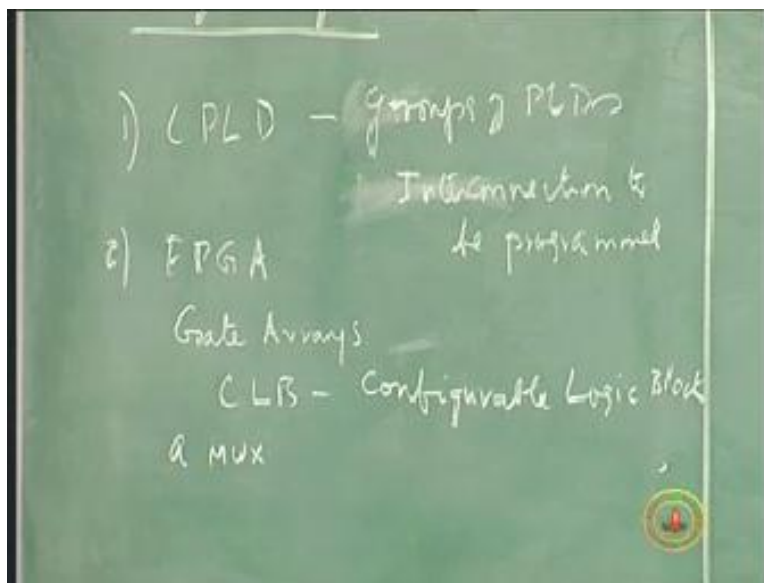 1) CPLD - groups of PLDs
Interconnection to
be programmed
2) FPGA
Gate Arrays
CLB - Configurable Logic Block
a MUX